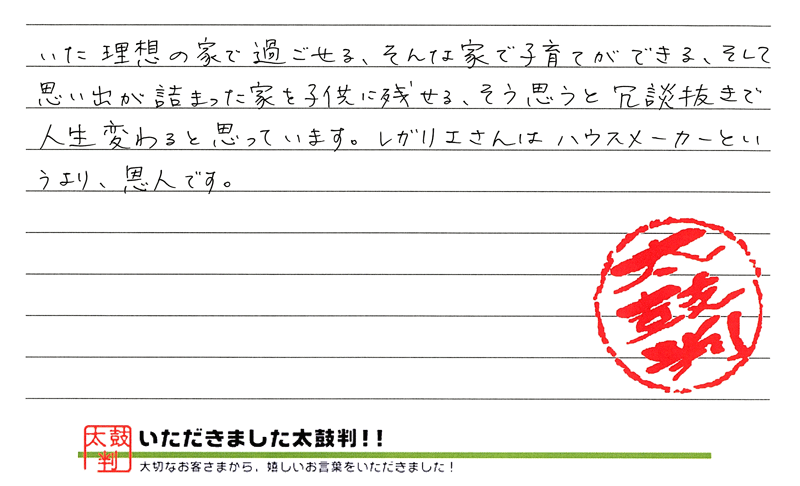 いた理想の家で過ごせる、そんな家で子育てができる、そして
思い出が詰まった家を子供に残せる、そう思うと冗談抜きで
人生変わると思っています。レガリエさんはハウスメーカーとい
うより、恩人です。
太
鼓
判
太鼓
判
いただきました太鼓判!!
大切なお客さまから、嬉しいお言葉をいただきました!